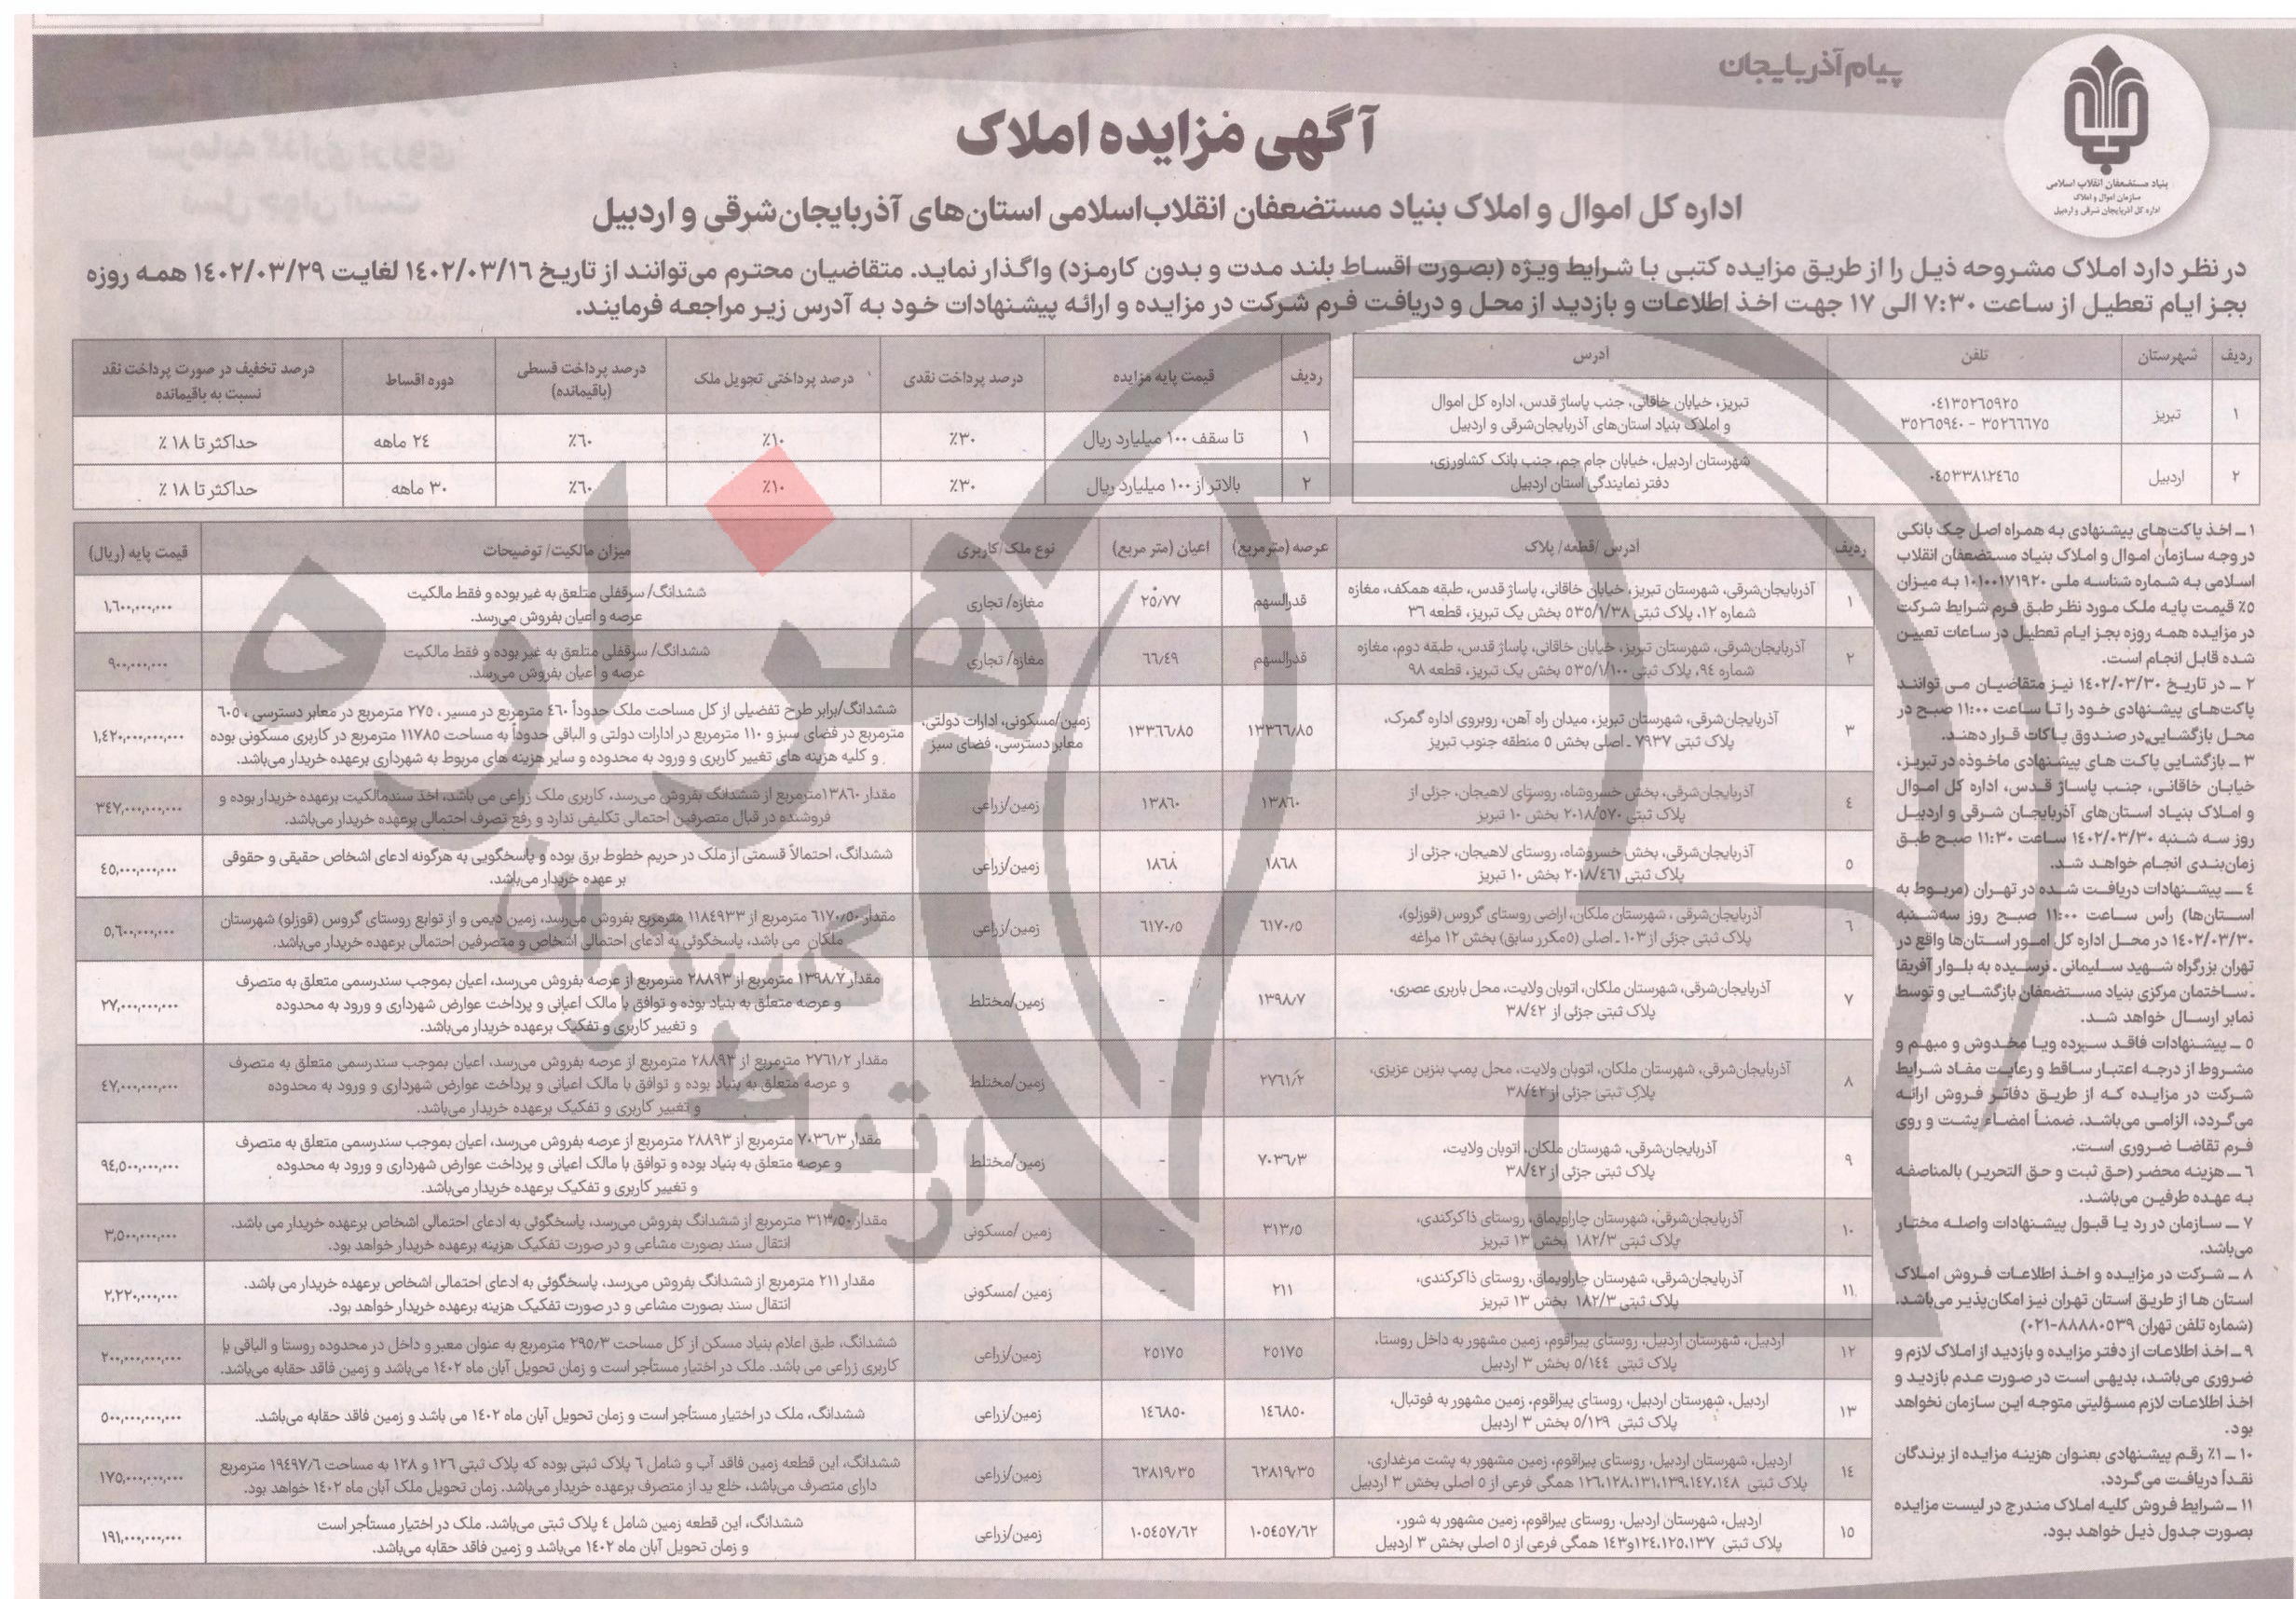 پیام آذربایجان
بنیاد مستضعفان انقلاب اسلامی
سازمان اموال و املاک
اداره کل آذربایجان شرقی و اردبیل
آگهی مزایده املاک
اداره کل اموال و املاک بنیاد مستضعفان انقلاب‌اسلامی استان‌های آذربایجان‌شرقی و اردبیل
در نظر دارد املاک مشروحه ذیل را از طریق مزایده کتبی با شرایط ویژه (بصورت اقساط بلند مدت و بدون کارمزد) واگذار نماید. متقاضیان محترم می‌توانند از تاریخ ۱٤۰۲/۰۳/۱٦ لغایت ۱٤۰۲/۰۳/۲۹ همه روزه
بجز ایام تعطیل از ساعت ۷:۳۰ الی ۱۷ جهت اخذ اطلاعات و بازدید از محل و دریافت فرم شرکت در مزایده و ارائه پیشنهادات خود به آدرس زیر مراجعه فرمایند.
ردیف شهرستان تلفن آدرس
۱ تبریز ۰٤۱۳٥۲٦٥۹۲٥ تبریز، خیابان خاقانی، جنب پاساژ قدس، اداره کل اموال
۳٥۲٦٦٦۷٥ - ۳٥۲٦٥۹٤۰ و املاک بنیاد استان‌های آذربایجان‌شرقی و اردبیل
۲ اردبیل ۰٤٥۳۳۸۱۲٤٦٥ شهرستان اردبیل، خیابان جام جم، جنب بانک کشاورزی،
دفتر نمایندگی استان اردبیل
ردیف قیمت پایه مزایده درصد پرداخت نقدی درصد پرداختی تحویل ملک درصد پرداخت قسطی (باقیمانده) دوره اقساط درصد تخفیف در صورت پرداخت نقد نسبت به باقیمانده
۱ تا سقف ۱۰۰ میلیارد ریال ٪۳۰ ٪۱۰ ٪٦۰ ۲٤ ماهه حداکثر تا ۱۸ ٪
۲ بالاتر از ۱۰۰ میلیارد ریال ٪۳۰ ٪۱۰ ٪٦۰ ۳۰ ماهه حداکثر تا ۱۸ ٪
۱ ـ اخذ پاکت‌های پیشنهادی به همراه اصل چک بانکی
در وجه سازمان اموال و املاک بنیاد مستضعفان انقلاب
اسلامی به شماره شناسه ملی ۱۰۱۰۰۱۷۱۹۲۰ به میزان
٥٪ قیمت پایه ملک مورد نظر طبق فرم شرایط شرکت
در مزایده همه روزه بجز ایام تعطیل در ساعات تعیین
شده قابل انجام است.
۲ ـ در تاریخ ۱٤۰۲/۰۳/۳۰ نیز متقاضیان می توانند
پاکت‌های پیشنهادی خود را تا ساعت ۱۱:۰۰ صبح در
محل بازگشایی در صندوق پاکات قرار دهند.
۳ ـ بازگشایی پاکت های پیشنهادی ماخوذه در تبریز،
خیابان خاقانی، جنب پاساژ قدس، اداره کل اموال
و املاک بنیاد استان‌های آذربایجان شرقی و اردبیل
روز سه شنبه ۱٤۰۲/۰۳/۳۰ ساعت ۱۱:۳۰ صبح طبق
زمان‌بندی انجام خواهد شد.
٤ ـ پیشنهادات دریافت شده در تهران (مربوط به
استان‌ها) رأس ساعت ۱۱:۰۰ صبح روز سه‌شنبه
۱٤۰۲/۰۳/۳۰ در محل اداره کل امور استان‌ها واقع در
تهران بزرگراه شهید سلیمانی ـ نرسیده به بلوار آفریقا
ـ ساختمان مرکزی بنیاد مستضعفان بازگشایی و توسط
نمابر ارسال خواهد شد.
٥ ـ پیشنهادات فاقد سپرده ویا مخدوش و مبهم و
مشروط از درجه اعتبار ساقط و رعایت مفاد شرایط
شرکت در مزایده که از طریق دفاتر فروش ارائه
می‌گردد، الزامی می‌باشد. ضمناً امضاء پشت و روی
فرم تقاضا ضروری است.
٦ ـ هزینه محضر (حق ثبت و حق التحریر) بالمناصفه
به عهده طرفین می‌باشد.
۷ ـ سازمان در رد یا قبول پیشنهادات واصله مختار
می‌باشد.
۸ ـ شرکت در مزایده و اخذ اطلاعات فروش املاک
استان ها از طریق استان تهران نیز امکان‌پذیر می‌باشد.
(شماره تلفن تهران ۸۸۸۸۰٥۳۹-۰۲۱)
۹ ـ اخذ اطلاعات از دفتر مزایده و بازدید از املاک لازم و
ضروری می‌باشد، بدیهی است در صورت عدم بازدید و
اخذ اطلاعات لازم مسؤلیتی متوجه این سازمان نخواهد
بود.
۱۰ ـ ۱٪ رقم پیشنهادی بعنوان هزینه مزایده از برندگان
نقداً دریافت می‌گردد.
۱۱ ـ شرایط فروش کلیه املاک مندرج در لیست مزایده
بصورت جدول ذیل خواهد بود.
ردیف آدرس /قطعه/ پلاک عرصه (مترمربع) اعیان (متر مربع) نوع ملک/کاربری میزان مالکیت/ توضیحات قیمت پایه (ریال)
۱ آذربایجان‌شرقی، شهرستان تبریز، خیابان خاقانی، پاساژ قدس، طبقه همکف، مغازه قدرالسهم ۲٥/۷۷ مغازه/ تجاری ششدانگ/ سرقفلی متلعق به غیر بوده و فقط مالکیت ۱,٦۰۰,۰۰۰,۰۰۰
شماره ۱۲، پلاک ثبتی ٥۳٥/۱/۳۸ بخش یک تبریز، قطعه ۳٦ عرصه و اعیان بفروش می‌رسد.
۲ آذربایجان‌شرقی، شهرستان تبریز، خیابان خاقانی، پاساژ قدس، طبقه دوم، مغازه قدرالسهم ٦٦/٤۹ مغازه/ تجاری ششدانگ/ سرقفلی متلعق به غیر بوده و فقط مالکیت ۹۰۰,۰۰۰,۰۰۰
شماره ۹٤، پلاک ثبتی ٥۳٥/۱/۱۰۰ بخش یک تبریز، قطعه ۹۸ عرصه و اعیان بفروش می‌رسد.
۳ آذربایجان‌شرقی، شهرستان تبریز، میدان راه آهن، روبروی اداره گمرک، ۱۳۳٦٦/۸٥ ۱۳۳٦٦/۸٥ زمین/مسکونی، ادارات دولتی، ششدانگ/برابر طرح تفضیلی از کل مساحت ملک حدوداً ٤٦۰ مترمربع در مسیر ، ۲۷٥ مترمربع در معابر دسترسی ، ٦۰٥ ۱,٤۲۰,۰۰۰,۰۰۰,۰۰۰
پلاک ثبتی ۷۹۳۷ ـ اصلی بخش ٥ منطقه جنوب تبریز معابر دسترسی، فضای سبز مترمربع در فضای سبز و ۱۱۰ مترمربع در ادارات دولتی و الباقی حدوداً به مساحت ۱۱۷۸٥ مترمربع در کاربری مسکونی بوده
و کلیه هزینه های تغییر کاربری و ورود به محدوده و سایر هزینه های مربوط به شهرداری برعهده خریدار می‌باشد.
٤ آذربایجان‌شرقی، بخش خسروشاه، روستای لاهیجان، جزئی از ۱۳۸٦۰ ۱۳۸٦۰ زمین/زراعی مقدار ۱۳۸٦۰مترمربع از ششدانگ بفروش می‌رسد، کاربری ملک زراعی می باشد، اخذ سندمالکیت برعهده خریدار بوده و ۳٤۷,۰۰۰,۰۰۰,۰۰۰
پلاک ثبتی ۲۰۱۸/٥۷۰ بخش ۱۰ تبریز فروشنده در قبال متصرفین احتمالی تکلیفی ندارد و رفع تصرف احتمالی برعهده خریدار می‌باشد.
٥ آذربایجان‌شرقی، بخش خسروشاه، روستای لاهیجان، جزئی از ۱۸٦۸ ۱۸٦۸ زمین/زراعی ششدانگ، احتمالاً قسمتی از ملک در حریم خطوط برق بوده و پاسخگویی به هرگونه ادعای اشخاص حقیقی و حقوقی ٤٥,۰۰۰,۰۰۰,۰۰۰
پلاک ثبتی ۲۰۱۸/٤٦۱ بخش ۱۰ تبریز بر عهده خریدار می‌باشد.
٦ آذربایجان‌شرقی ، شهرستان ملکان، اراضی روستای گروس (قوزلو)، ٦۱۷۰/٥ ٦۱۷۰/٥ زمین/زراعی مقدار ٦۱۷۰/٥۰ مترمربع از ۱۱۸٤۹۳۳ مترمربع بفروش می‌رسد، زمین دیمی و از توابع روستای گروس (قوزلو) شهرستان ٥,٦۰۰,۰۰۰,۰۰۰
پلاک ثبتی جزئی از ۱۰۳ ـ اصلی (٥مکرر سابق) بخش ۱۲ مراغه ملکان می باشد، پاسخگوئی به ادعای احتمالی اشخاص و متصرفین احتمالی برعهده خریدار می‌باشد.
۷ آذربایجان‌شرقی، شهرستان ملکان، اتوبان ولایت، محل باربری عصری، ۱۳۹۸/۷ - زمین/مختلط مقدار ۱۳۹۸/۷ مترمربع از ۲۸۸۹۳ مترمربع از عرصه بفروش می‌رسد، اعیان بموجب سندرسمی متعلق به متصرف ۲۷,۰۰۰,۰۰۰,۰۰۰
پلاک ثبتی جزئی از ۳۸/٤۲ و عرصه متعلق به بنیاد بوده و توافق با مالک اعیانی و پرداخت عوارض شهرداری و ورود به محدوده
و تغییر کاربری و تفکیک برعهده خریدار می‌باشد.
۸ آذربایجان‌شرقی، شهرستان ملکان، اتوبان ولایت، محل پمپ بنزین عزیزی، ۲۷٦۱/۲ - زمین/مختلط مقدار ۲۷٦۱/۲ مترمربع از ۲۸۸۹۳ مترمربع از عرصه بفروش می‌رسد، اعیان بموجب سندرسمی متعلق به متصرف ٤۷,۰۰۰,۰۰۰,۰۰۰
پلاک ثبتی جزئی از ۳۸/٤۲ و عرصه متعلق به بنیاد بوده و توافق با مالک اعیانی و پرداخت عوارض شهرداری و ورود به محدوده
و تغییر کاربری و تفکیک برعهده خریدار می‌باشد.
۹ آذربایجان‌شرقی، شهرستان ملکان، اتوبان ولایت، ۷۰۳٦/۳ - زمین/مختلط مقدار ۷۰۳٦/۳ مترمربع از ۲۸۸۹۳ مترمربع از عرصه بفروش می‌رسد، اعیان بموجب سندرسمی متعلق به متصرف ۹٤,٥۰۰,۰۰۰,۰۰۰
پلاک ثبتی جزئی از ۳۸/٤۲ و عرصه متعلق به بنیاد بوده و توافق با مالک اعیانی و پرداخت عوارض شهرداری و ورود به محدوده
و تغییر کاربری و تفکیک برعهده خریدار می‌باشد.
۱۰ آذربایجان‌شرقی، شهرستان چاراویماق، روستای ذاکرکندی، ۳۱۳/٥ - زمین /مسکونی مقدار ۳۱۳/٥۰ مترمربع از ششدانگ بفروش می‌رسد، پاسخگوئی به ادعای احتمالی اشخاص برعهده خریدار می باشد. ۳,٥۰۰,۰۰۰,۰۰۰
پلاک ثبتی ۱۸۲/۳ بخش ۱۳ تبریز انتقال سند بصورت مشاعی و در صورت تفکیک هزینه برعهده خریدار خواهد بود.
۱۱ آذربایجان‌شرقی، شهرستان چاراویماق، روستای ذاکرکندی، ۲۱۱ - زمین /مسکونی مقدار ۲۱۱ مترمربع از ششدانگ بفروش می‌رسد، پاسخگوئی به ادعای احتمالی اشخاص برعهده خریدار می باشد. ۲,۲۲۰,۰۰۰,۰۰۰
پلاک ثبتی ۱۸۲/۳ بخش ۱۳ تبریز انتقال سند بصورت مشاعی و در صورت تفکیک هزینه برعهده خریدار خواهد بود.
۱۲ اردبیل، شهرستان اردبیل، روستای پیراقوم، زمین مشهور به داخل روستا، ۲٥۱۷٥ ۲٥۱۷٥ زمین/زراعی ششدانگ، طبق اعلام بنیاد مسکن از کل مساحت ۲۹٥/۳ مترمربع به عنوان معبر و داخل در محدوده روستا و الباقی با ۲۰۰,۰۰۰,۰۰۰,۰۰۰
پلاک ثبتی ٥/۱٤٤ بخش ۳ اردبیل کاربری زراعی می باشد. ملک در اختیار مستأجر است و زمان تحویل آبان ماه ۱٤۰۲ می‌باشد و زمین فاقد حقابه می‌باشد.
۱۳ اردبیل، شهرستان اردبیل، روستای پیراقوم، زمین مشهور به فوتبال، ۱٤٦۸٥۰ ۱٤٦۸٥۰ زمین/زراعی ششدانگ، ملک در اختیار مستأجر است و زمان تحویل آبان ماه ۱٤۰۲ می باشد و زمین فاقد حقابه می‌باشد. ٥۰۰,۰۰۰,۰۰۰,۰۰۰
پلاک ثبتی ٥/۱۲۹ بخش ۳ اردبیل
۱٤ اردبیل، شهرستان اردبیل، روستای پیراقوم، زمین مشهور به پشت مرغداری، ٦۲۸۱۹/۳٥ ٦۲۸۱۹/۳٥ زمین/زراعی ششدانگ، این قطعه زمین فاقد آب و شامل ٦ پلاک ثبتی بوده که پلاک ثبتی ۱۲٦ و ۱۲۸ به مساحت ۱۹٤۹۷/٦ مترمربع ۱۷٥,۰۰۰,۰۰۰,۰۰۰
پلاک ثبتی ۱۲٦،۱۲۸،۱۳۱،۱۳۹،۱٤۷،۱٤۸ همگی فرعی از ٥ اصلی بخش ۳ اردبیل دارای متصرف می‌باشد، خلع ید از متصرف برعهده خریدار می‌باشد. زمان تحویل ملک آبان ماه ۱٤۰۲ خواهد بود.
۱٥ اردبیل، شهرستان اردبیل، روستای پیراقوم، زمین مشهور به شور، ۱۰٥٤٥۷/٦۲ ۱۰٥٤٥۷/٦۲ زمین/زراعی ششدانگ، این قطعه زمین شامل ٤ پلاک ثبتی می‌باشد. ملک در اختیار مستأجر است ۱۹۱,۰۰۰,۰۰۰,۰۰۰
پلاک ثبتی ۱۲٤،۱۲٥،۱۳۷و۱٤۳ همگی فرعی از ٥ اصلی بخش ۳ اردبیل و زمان تحویل آبان ماه ۱٤۰۲ می‌باشد و زمین فاقد حقابه می‌باشد.